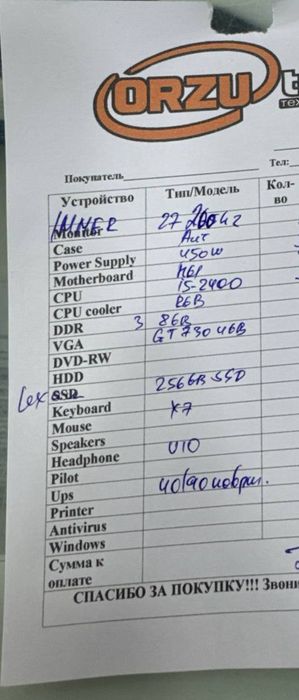 ORZU t
тех
Покупатель
Тел:
Устройство Тип/Модель Кол-во
Monitor 27 200Hz
Case
Power Supply 450W
Motherboard H61
CPU i5-2400
CPU cooler
DDR 3 8GB
VGA GT 730 4GB
DVD-RW
HDD
SSD 256GB SSD
Keyboard X7
Mouse
Speakers
Headphone U10
Pilot
Ups 40/90
Printer
Antivirus
Windows
Сумма к оплате
СПАСИБО ЗА ПОКУПКУ!!! Звони